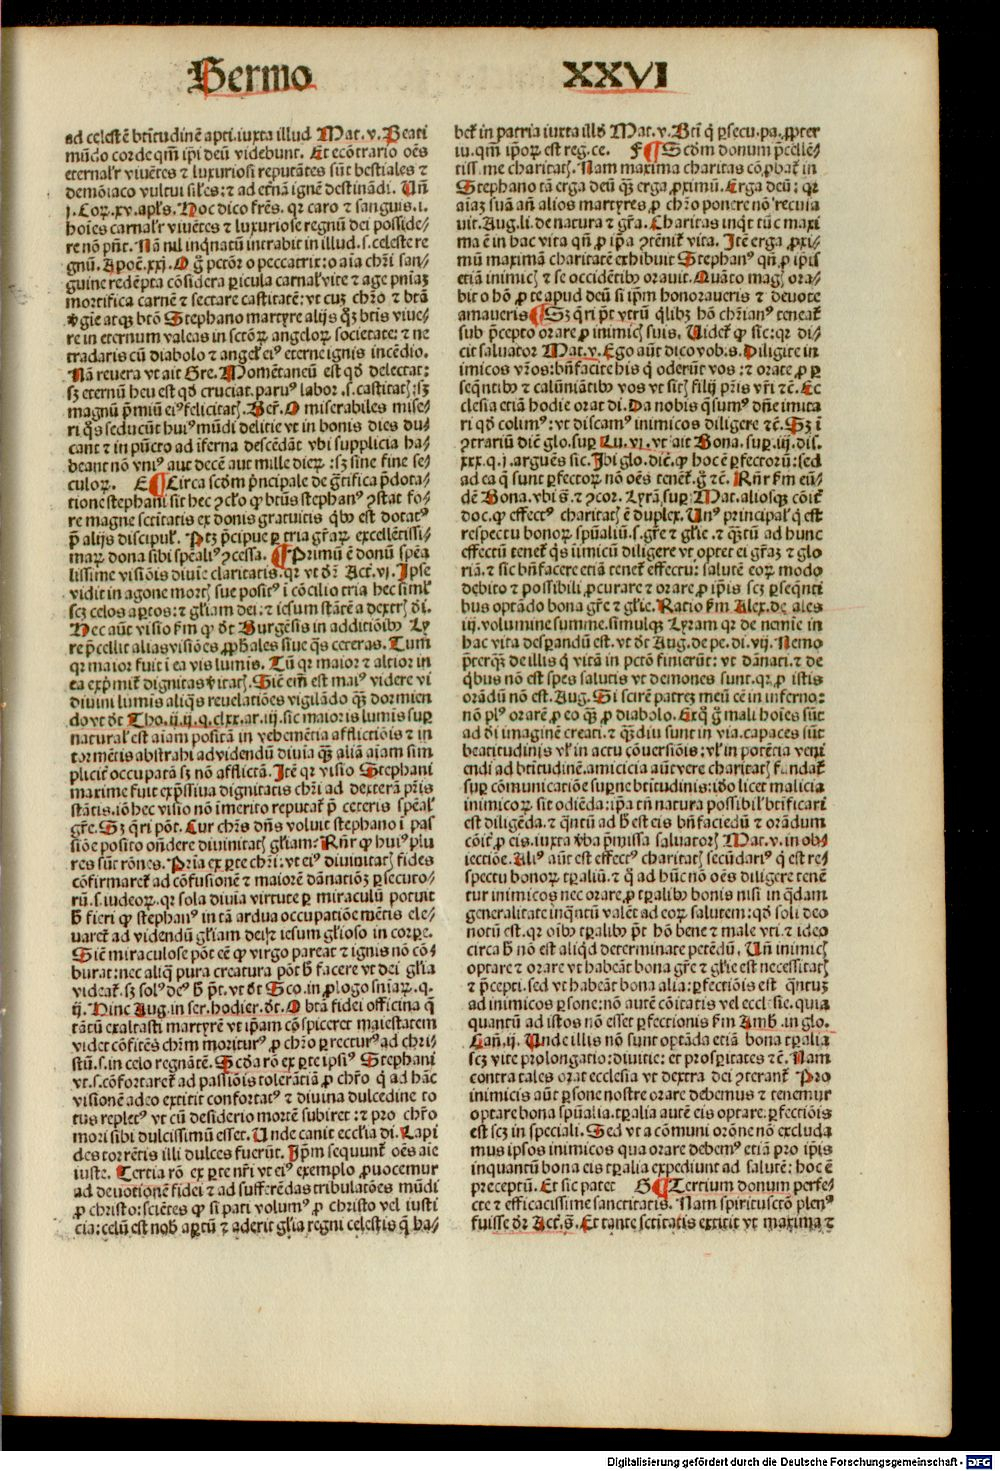 Sermo XXVI
ad celestē btītudinē apti.iuxta illud Mat.v.Beati
mūdo corde qm̄ ip̄i deū videbunt. Et ecōtrario oēs
eternal'r viuētes ⁊ luxuriosi reputātes sūt bestiales ⁊
demōiaco vultui sil'es:⁊ ad eternā ignē destināndi. Uñ
j.Cor.xv.apl's.Hoc dico fr̄es.qr caro ⁊ sanguis.i.
hoīes carnal'r viuētes ⁊ luxuriose regnū dei posside⸗
re nō pñt.Nā nil inqnatū intrabit in illud.s.celeste re
gnū.Apoc̄.xxj.O ḡ pctōr o peccatrix:o aīa chr̄i san⸗
guine redēpta cōsidera pericula carnal' vite ⁊ age pn̄iaz
mortifica carnē ⁊ sectare castitatē:vt cuz chr̄o ⁊ btā
v̄gie atqz btō Stephano martyre alijs qz btīs viue⸗
re in eternum valeas in sctōꝝ angeloꝝ societate:⁊ ne
tradaris cū diabolo ⁊ angel' ei⁹ eterne ignis incēdio.
Nā reuera vt ait Gre.Momētaneū est qd̄ delectat:
sz eternū heu est qd̄ cruciat.paru⁹ labor.s.castitatis:sz
magnū p̄miū ei⁹ felicitatis.Ber̄.O miserabiles mise⸗
ri q̄s seducūt hui⁹ mūdi delitie vt in bonis dies du⸗
cant ⁊ in pūcto ad īferna descēdāt vbi supplicia ha⸗
beant nō vni⁹ aut decē aut mille dieꝝ:sz sine fine se⸗
culoꝝ. E ¶Circa scdm p̄ncipale de gr̄tifica p̄dota⸗
tione stephani sit hec ꝯclo ꝙ btūs stephan⁹ ꝯstat fo⸗
re magne sctitatis ex donis gratuitis qb⁹ est dotat⁹
p̄ alijs discipul'. Ptz p̄cipue ꝑ tria gr̄aꝝ excellētissi⸗
maꝝ dona sibi spēali⁹ ꝯcessa. ¶Primū ē donū spēa
lissime visiōis diuīe claritatis.qr vt dr̄ Act.vj.Ipse
vidit in agone mortis sue posit⁹ i cōcilio tria hec siml'
scz celos aptos:⁊ gl'iam dei:⁊ iesum stātē a dextris dī.
Hec aūt visio fm ꝙ dt Burgēsis in additiōib⁹ Ly
re p̄cellit alias visiōes ꝓph̄ales siue q̄s ceteras.Tum
qr maior fuit i ea vis lumis. Tū qr maior ⁊ altior in
ea exp̄mit dignitas v̄itatis.Sic̄ em̄ est mai⁹ videre vi
diuini lumis aliq̄s reuelatiōes vigilādo qz̄ dormien
do vt dt Tho.ij.ij.q.clxx.ar.iij.sic maioris lumis sup
natural' est aiam positā in vehemētia afflictiōis ⁊ in
tormētis abstrahi ad videndū diuīa qz̄ aliā aiam sim
plicit̄ occupatā sz nō afflictā.Itē qr visio Stephani
maxime fuit exp̄ssiua dignitatis chr̄i ad dexterā pr̄is
stātis.iō hec visio nō īmerito reputat̄ p̄ ceteris spēal'
gr̄e.Sz q̄ri pōt. Cur chr̄s dn̄s voluit stephano ī pas
siōe posito oñdere diuinitatis gl'iam: Rn̄r ꝙ hui⁹ plu
res sūt rōnes.Pria ex ꝑte chr̄i:vt ei⁹ diuinitatis fides
cōfirmaret ad cōfusionē ⁊ maiorē dānatiōz ꝑsecuto⸗
rū.s.iudeoꝝ.qr sola diuīa virtute ꝑ miraculū potuit
h̄ fieri ꝙ stephan⁹ in tā ardua occupatiōe mētis ele⸗
uaret ad videndū gl'iam dei:⁊ iesum gl'ioso in corpe.
Sic̄ miraculose pōt eē ꝙ virgo pareat ⁊ ignis nō cō⸗
burat:nec aliq̄ pura creatura pōt h̄ facere vt dei gl'ia
videat̄.sz sol⁹ de⁹ h̄ p̄t.vt dt Sco.in prologo sniaꝝ.q.
ij.Hinc Aug.in ser.hodier.dt.O btā fidei officina q̄
tātū exaltasti martyrē vt ip̄am cōspiceret maiestatem
videt cōfitēs chr̄m moritur⁹ ꝓ chr̄o ꝑrectur⁹ ad chri⸗
stū.s.in celo regnātē.Scd̄a rō ex ꝑte ipsi⁹ Stephani
vt.s.cōfortaret̄ ad passiōis tolerātiā ꝓ chr̄o q̄ ad hāc
visionē adeo extitit confortat⁹ ⁊ diuina dulcedine to
tus replet⁹ vt cū desiderio mortē subiret:⁊ pro chr̄o
mori sibi dulcissimū esset.Unde canit eccl'ia dī.Lapi
des torrētis illi dulces fuerūt.Ip̄m sequunt̄ oēs aīe
iuste. Tertia rō ex ꝑte nr̄i vt ei⁹ exemplo ꝓuocemur
ad deuotionē fidei ⁊ ad sufferēdas tribulatōes mūdi
ꝓ christo:sciētes ꝙ si pati volum⁹ ꝓ christo vel iusti
cia:celū est nob̄ aptū ⁊ aderit gl'ia regni celestis q̄ ha⸗
bet in patria iuxta illd̄ Mat.v.Btī q̄ ꝑsecu.pa.ꝓpter
iu.qm̄ ip̄oꝝ est reg.ce. F ¶Scdm donum p̄cellē⸗
tissime charitatis.Nam maxima charitas cōprobat̄ in
Stephano tā erga deū qz̄ erga ꝓximū.Erga deū:qr
aiaz suā añ alios martyres ꝓ chr̄o ponere nō recuia
uit.Aug.li.de natura ⁊ gr̄a.Charitas inqt tūc maxi
ma ē in hac vita qn̄ ꝓ ip̄a ꝯtēnit̄ vita. Itē erga ꝓxi⸗
mū maximā charitatē exhibuit Stephan⁹ qn̄ ꝓ ip̄is
etiā inimicis ⁊ se occidētib⁹ orauit.Quāto magis ora⸗
bit o hō ꝓ te apud deū si ip̄m honoraueris ⁊ deuote
amaueris ¶Sz q̄ri p̄t vtrū qlibz hō chr̄ian⁹ teneat̄
sub p̄cepto orare ꝓ inimicis suis. Uidet̄ ꝙ sic:qr di⸗
cit saluator Mat.v.Ego aūt dico vob̄.s.Diligite in
imicos vr̄os:bn̄facite his q̄ oderūt vos:⁊ orate ꝓ ꝑ
seqntib⁹ ⁊ calūniātib⁹ vos vt sitis filij pr̄is vr̄i ⁊c̄.Ec
clesia etiā hodie orat dī.Da nobis q̄sum⁹ dn̄e imita
ri qd̄ colim⁹:vt discam⁹ inimicos diligere ⁊c̄.Sz ī
ꝯtrariū dic̄ glo.sup Lu.vj.vt ait Bona.sup.iij.dis.
xxx.q.j.arguēs sic.Ibi glo.dic̄.ꝙ hoc ē ꝑfectorū:sed
ad ea q̄ sunt ꝑfectoꝝ nō oēs tenent̄.ḡ ⁊c̄. Rn̄r fm eū⸗
dē Bona.vbi s̄.⁊ ꝯcor.Lyrā sup Mat.aliosqz cōit̄
doc.ꝙ effect⁹ charitatis ē duplex.Un⁹ principal' q̄ est
respectu bonoꝝ spūaliū.s.gr̄e ⁊ gl'ie.⁊ qz̄tū ad hunc
effectū tenet̄ q̄s īimicū diligere vt optet ei gr̄az ⁊ glo
riā.⁊ sic bn̄facere etiā tenet̄ effectu:salutē eoꝝ modo
debito ⁊ possibili ꝓcurare ⁊ orare ꝓ ip̄is scz ꝑseqnti
bus optādo bona gr̄e ⁊ gl'ie.Ratio fm Alex.de ales
iij.volumine summe.simulqz Lyram qr de nemine in
hac vita despandū est.vt dt Aug.de pe.di.vij.Nemo
p̄terqz̄ de illis q̄ vitā in pctō finierūt:vt dānati.⁊ de
qbus nō est spes salutis vt demones sunt.qr ꝓ istis
orādū nō est.Aug.Si scirē patrez meū eē in inferno:
nō pl⁹ orarē ꝓ eo qz̄ ꝓ diabolo.Exq̄ ḡ mali hoīes sūt
ad dī imaginē creati.⁊ qz̄diu sunt in via.capaces sūt
beatitudinis vl' in actu cōuersiōis:vl' in potētia veni
endi ad btītudinē.amicicia aūt vere charitatis fundat̄
sup cōmunicatōe supne btitudinis:idō licet malicia
inimicoꝝ sit odiēda:ip̄a tn̄ natura possibil' btīficari
est diligēda.⁊ qntū ad h̄ est eis bn̄faciedū ⁊ orādum
cōit̄ ꝓ eis.iuxta v̄ba p̄missa saluatoris Mat.v.in ob⸗
iectiōe.Ali⁹ aūt est effect⁹ charitatis secūdari⁹ q̄ est re⸗
spectu bonoꝝ tꝑaliū.⁊ q̄ ad hūc nō oēs diligere tenē
tur inimicos nec orare.ꝓ tꝑalib⁹ bonis nisi in qdam
generalitate inqntū valēt ad eoꝝ salutem:qd̄ soli deo
notū est.qr oib⁹ tꝑalib⁹ p̄t hō bene ⁊ male vti.⁊ ideo
circa h̄ nō est aliqd determinate petēdū. Uñ inimicis
optare ⁊ orare vt habeāt bona gr̄e ⁊ gl'ie est necessitatis
⁊ p̄cepti.sed vt habeāt bona alia:ꝑfectiōis est qntuz
ad inimicos ꝑsone:nō autē cōitatis vel eccl'sie.quia
quantū ad istos nō esset ꝑfectionis fm Amb.in glo.
Gal'.ij. Unde illis nō sunt optāda etiā bona tꝑalia
scz vite prolongatio:diuitie:et prosperitates ⁊c̄.Nam
contra tales orat ecclesia vt dextra dei ꝯterant̄ Pro
inimicis aūt ꝑsone nostre orare debemus ⁊ tenemur
optare bona spūalia.tꝑalia autē eis optare.ꝑfectiōis
est scz in speciali.Sed vt a cōmuni orōne nō excluda
mus ipsos inimicos qua orare debem⁹ etiā pro ip̄is
inquantū bona eis tꝑalia expediunt ad salutē:hoc ē
preceptū.Et sic patet G ¶Tertium donum perfe⸗
cte ⁊ efficacissime sanctitatis.Nam spiritusctō plen⁹
fuisse dr̄ Act.s̄.Et tante sctitatis extitit vt maxima ⁊
Digitalisierung gefördert durch die Deutsche Forschungsgemeinschaft - DFG